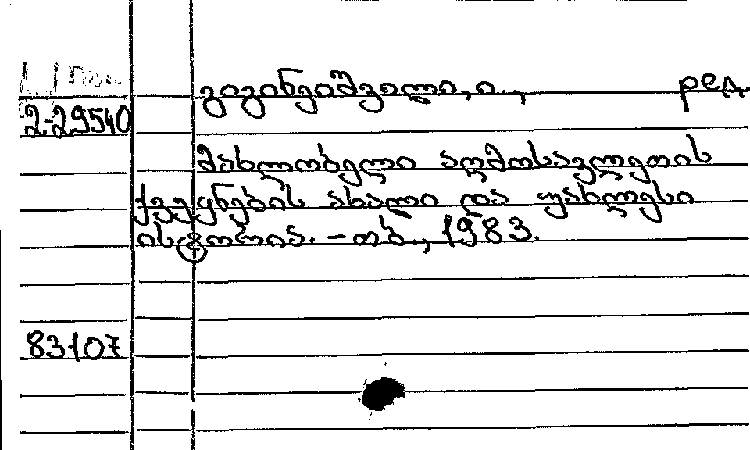 გიგინეიშვილი, ი., ред.
2-29540
მახლობელი აღმოსავლეთის
ქვეყნების ახალი და უახლესი
ისტორია. – თბ., 1983.
83107